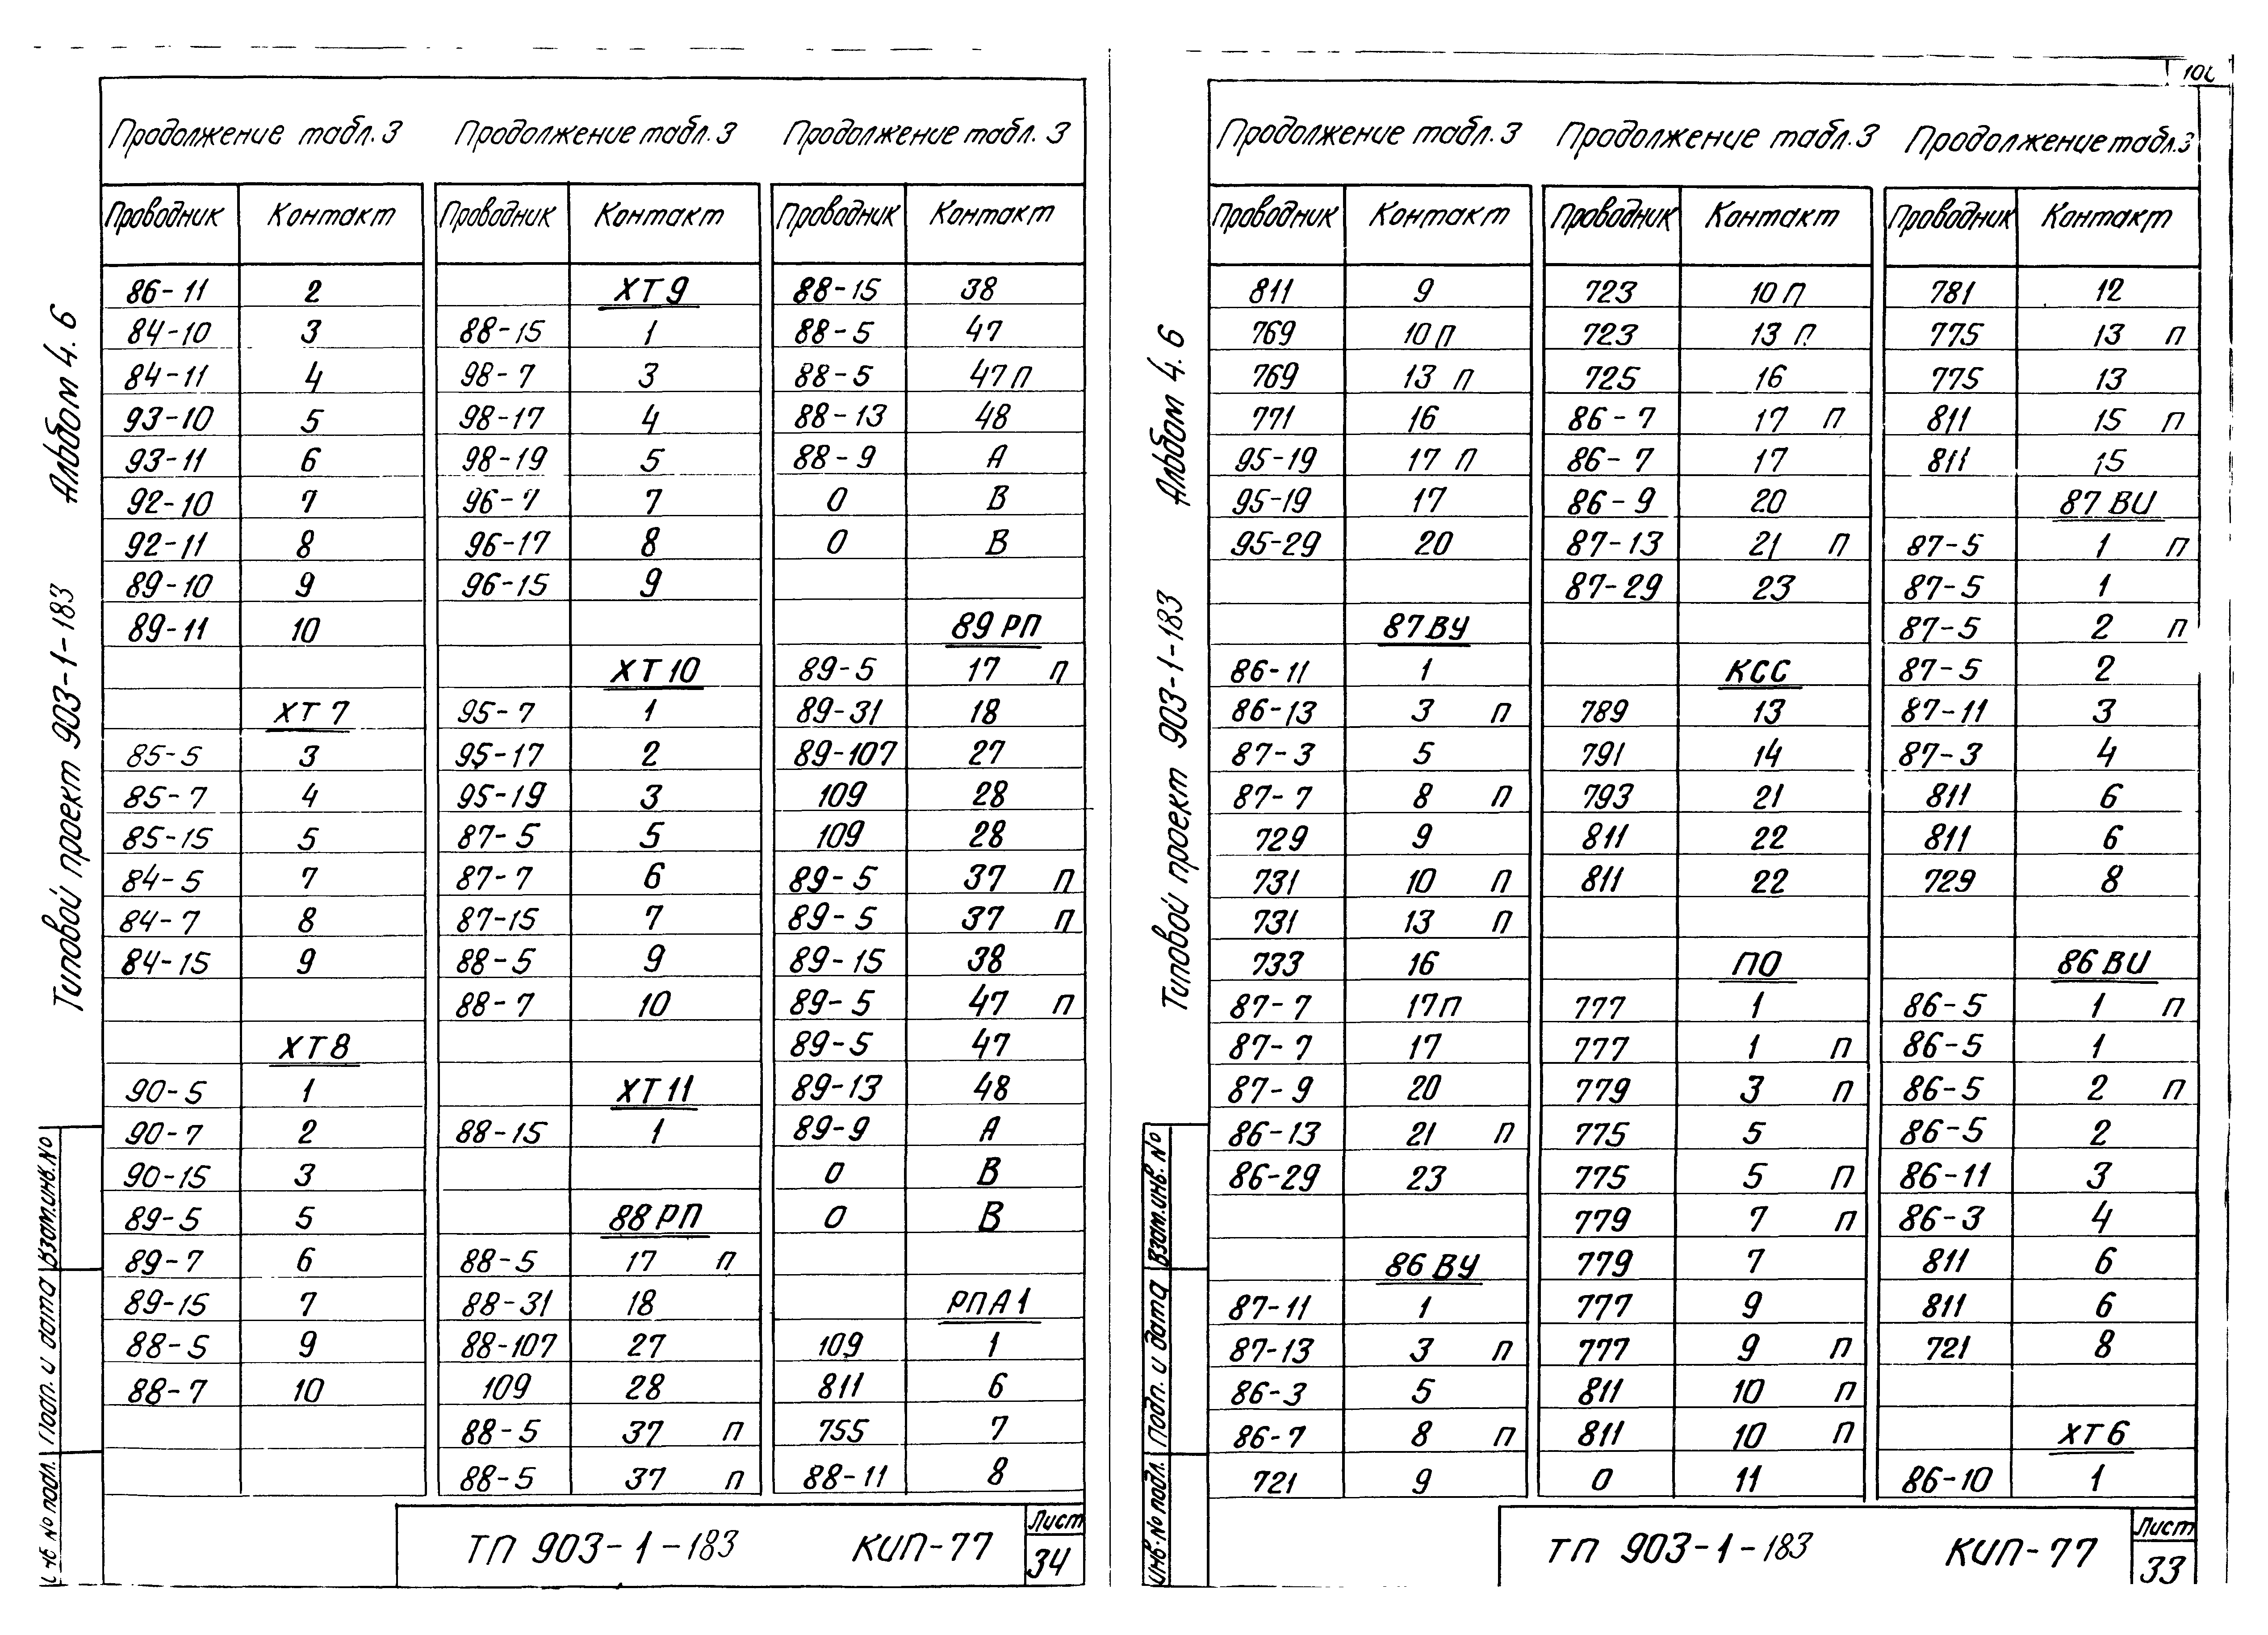 Альбом 4.6
Типовой проект 903-1-183
Продолжение табл.3
Проводник Контакт
86-11 2
84-10 3
84-11 4
93-10 5
93-11 6
92-10 7
92-11 8
89-10 9
89-11 10
ХТ7
85-5 3
85-7 4
85-15 5
84-5 7
84-7 8
84-15 9
ХТ8
90-5 1
90-7 2
90-15 3
89-5 5
89-7 6
89-15 7
88-5 9
88-7 10
Продолжение табл.3
Проводник Контакт
ХТ9
88-15 1
98-7 3
98-17 4
98-19 5
96-7 7
96-17 8
96-15 9
ХТ10
95-7 1
95-17 2
95-19 3
87-5 5
87-7 6
87-15 7
88-5 9
88-7 10
ХТ11
88-15 1
88РП
88-5 17 П
88-31 18
88-107 27
109 28
88-5 37 П
88-5 37 П
Продолжение табл.3
Проводник Контакт
88-15 38
88-5 47
88-5 47П
88-13 48
88-9 А
0 В
0 В
89РП
89-5 17 П
89-31 18
89-107 27
109 28
109 28
89-5 37 П
89-5 37 П
89-15 38
89-5 47 П
89-5 47
89-13 48
89-9 А
0 В
0 В
РПА1
109 1
811 6
755 7
88-11 8
Взам.инв.№
Подп. и дата
№ подл.
ТП 903-1-183 КИП-77
Лист
34
Альбом 4.6
Типовой проект 903-1-183
Продолжение табл.3
Проводник Контакт
811 9
769 10П
769 13 П
771 16
95-19 17 П
95-19 17
95-29 20
87ВУ
86-11 1
86-13 3 П
87-3 5
87-7 8 П
729 9
731 10 П
731 13 П
733 16
87-7 17П
87-7 17
87-9 20
86-13 21 П
86-29 23
86ВУ
87-11 1
87-13 3 П
86-3 5
86-7 8 П
721 9
Продолжение табл.3
Проводник Контакт
723 10П
723 13 П
725 16
86-7 17 П
86-7 17
86-9 20
87-13 21 П
87-29 23
КСС
789 13
791 14
793 21
811 22
811 22
ПО
777 1
777 1 П
779 3 П
775 5
775 5 П
779 7 П
779 7
777 9
777 9 П
811 10 П
811 10 П
0 11
Продолжение табл.3
Проводник Контакт
781 12
775 13 П
775 13
811 15 П
811 15
87ВИ
87-5 1 П
87-5 1
87-5 2 П
87-5 2
87-11 3
87-3 4
811 6
811 6
729 8
86ВИ
86-5 1 П
86-5 1
86-5 2 П
86-5 2
86-11 3
86-3 4
811 6
811 6
721 8
ХТ6
86-10 1
Взам.инв.№
Подп. и дата
Инв.№ подл.
ТП 903-1-183 КИП-77
Лист
33